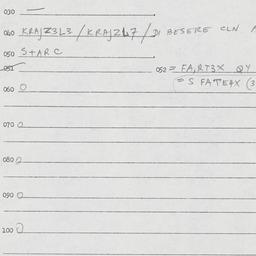 030 —
040 KRAJZ3L3 / KRAJZL7 / DI BESERE CLN
050 STARC
051
052 = FA,RT3X QY
= S FATE7X (3
060 0
070 0
080 0
090 0
100 0